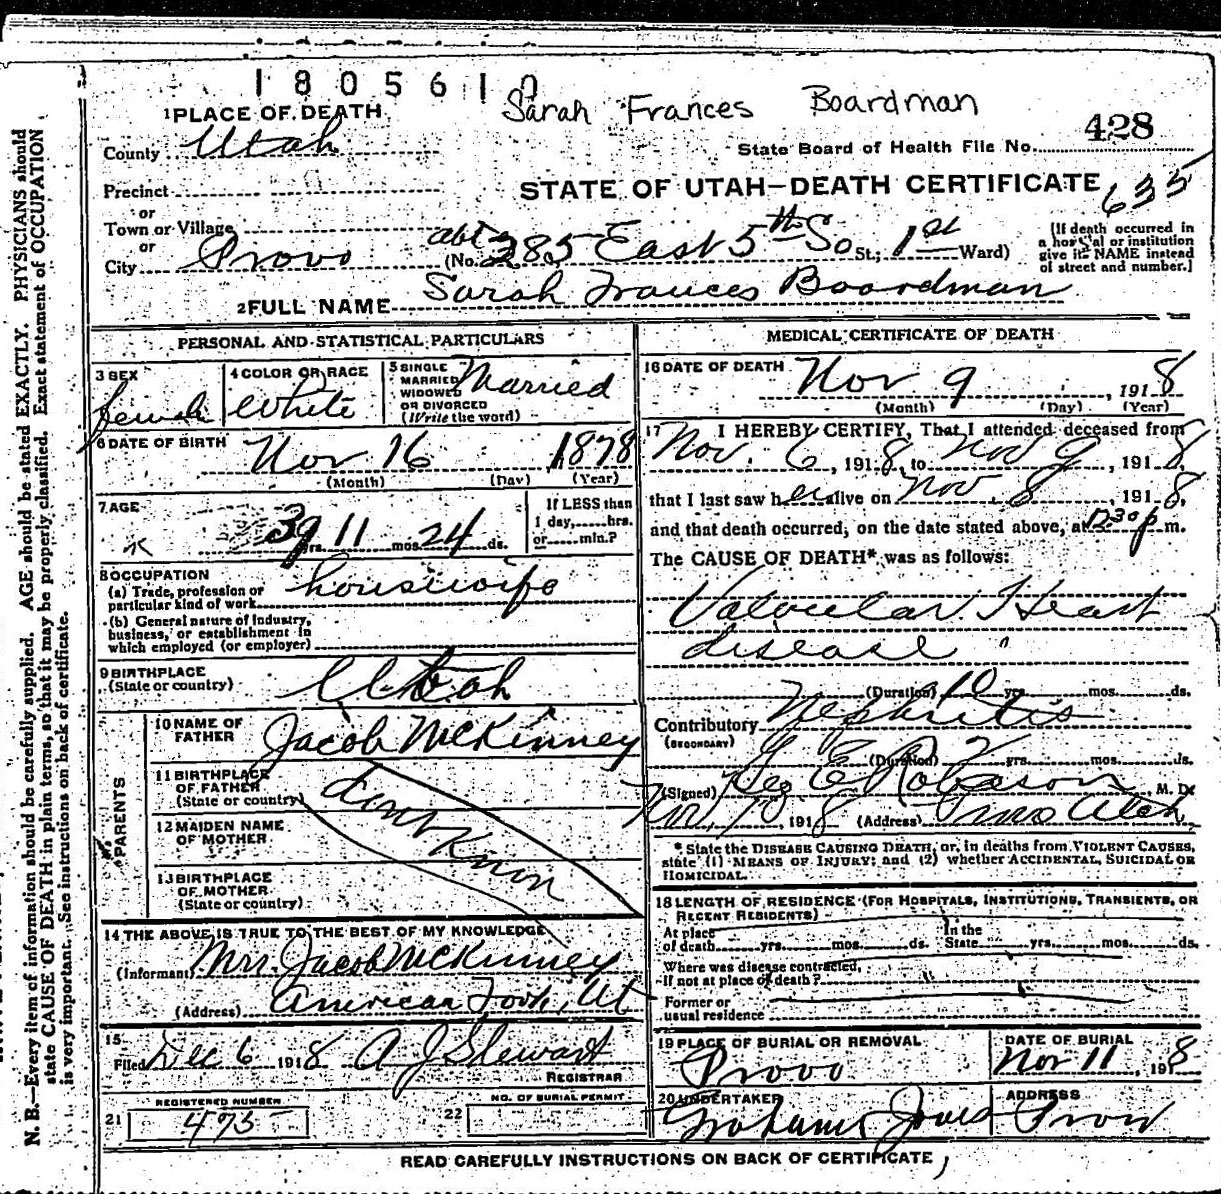 1805610
Sarah Frances Boardman
1 PLACE OF DEATH
428
County Utah
State Board of Health File No.
Precinct
STATE OF UTAH—DEATH CERTIFICATE
635
or
Town or Village
or
City Provo (No. abt 385 East 5th So St.; 1st Ward)
[If death occurred in
a hospital or institution
give its NAME instead
of street and number.]
2 FULL NAME Sarah Frances Boardman
PERSONAL AND STATISTICAL PARTICULARS
3 SEX
female
4 COLOR OR RACE
White
5 SINGLE
MARRIED
WIDOWED
OR DIVORCED
(Write the word)
Married
6 DATE OF BIRTH
Nov 16 1878
(Month) (Day) (Year)
7 AGE
39 yrs. 11 mos. 24 ds.
If LESS than
1 day,......hrs.
or......min.?
8 OCCUPATION
(a) Trade, profession or
particular kind of work
housewife
(b) General nature of Industry,
business, or establishment in
which employed (or employer)
9 BIRTHPLACE
(State or country)
Utah
PARENTS
10 NAME OF
FATHER
Jacob McKinney
11 BIRTHPLACE
OF FATHER
(State or country)
12 MAIDEN NAME
OF MOTHER
13 BIRTHPLACE
OF MOTHER
(State or country)
14 THE ABOVE IS TRUE TO THE BEST OF MY KNOWLEDGE
(Informant) Mrs. Jacob McKinney
(Address) American Fork, Ut
15
Filed Dec 6 1918 A J Stewart
REGISTRAR
21 REGISTERED NUMBER
475
22 NO. OF BURIAL PERMIT
MEDICAL CERTIFICATE OF DEATH
16 DATE OF DEATH
Nov 9, 1918
(Month) (Day) (Year)
17 I HEREBY CERTIFY, That I attended deceased from
Nov. 6, 1918, to Nov 9, 1918,
that I last saw her alive on Nov. 8, 1918,
and that death occurred, on the date stated above, at 1230 p. m.
The CAUSE OF DEATH* was as follows:
Valvular Heart
disease
(Duration) 10 yrs. mos. ds.
Contributory Nephritis
(SECONDARY)
(Duration) yrs. mos. ds.
(Signed) Geo E Robison M. D.
Nov. 10, 1918 (Address) Provo Utah
* State the DISEASE CAUSING DEATH, or, in deaths from VIOLENT CAUSES,
state (1) MEANS OF INJURY; and (2) whether ACCIDENTAL, SUICIDAL OR
HOMICIDAL.
18 LENGTH OF RESIDENCE (FOR HOSPITALS, INSTITUTIONS, TRANSIENTS, OR
RECENT RESIDENTS)
At place
of death......yrs......mos......ds.
In the
State......yrs......mos......ds.
Where was disease contracted,
If not at place of death?
Former or
usual residence
19 PLACE OF BURIAL OR REMOVAL
Provo
DATE OF BURIAL
Nov 11, 1918
20 UNDERTAKER
ADDRESS
Provo
READ CAREFULLY INSTRUCTIONS ON BACK OF CERTIFICATE
N. B.—Every item of information should be carefully supplied. AGE should be stated EXACTLY. PHYSICIANS should
state CAUSE OF DEATH in plain terms, so that it may be properly classified. Exact statement of OCCUPATION
is very important. See instructions on back of certificate.